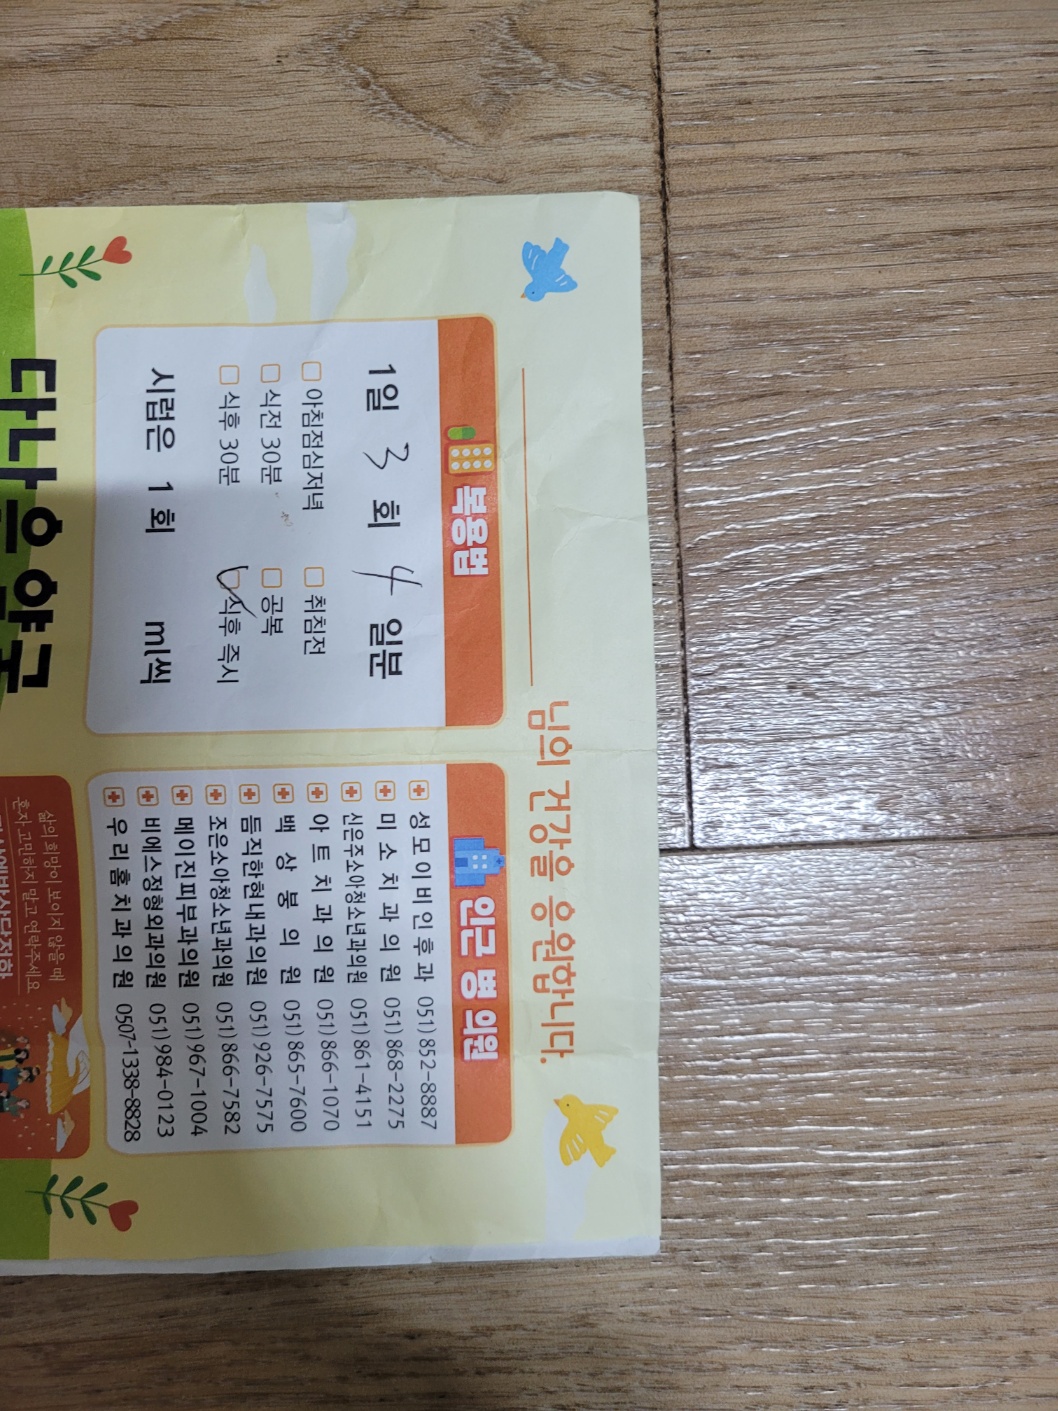 님의 건강을 응원합니다.
복용법
1일 3 회 4 일분
아침점심저녁 취침전
식전 30분 공복
식후 30분 식후 즉시
시럽은 1 회 ml씩
인근 병 의원
성모이비인후과 051) 852-8887
미소치과의원 051) 868-2275
신은주소아청소년과의원 051) 861-4151
아트치과의원 051) 866-1070
백상붕의원 051) 865-7600
듬직한현내과의원 051) 926-7575
조은소아청소년과의원 051) 866-7582
메이진피부과의원 051) 967-1004
비에스정형외과의원 051) 984-0123
우리홈치과의원 0507-1338-8828
다나은약국
삶의 희망이 보이지 않을 때
혼자 고민하지 말고 연락주세요